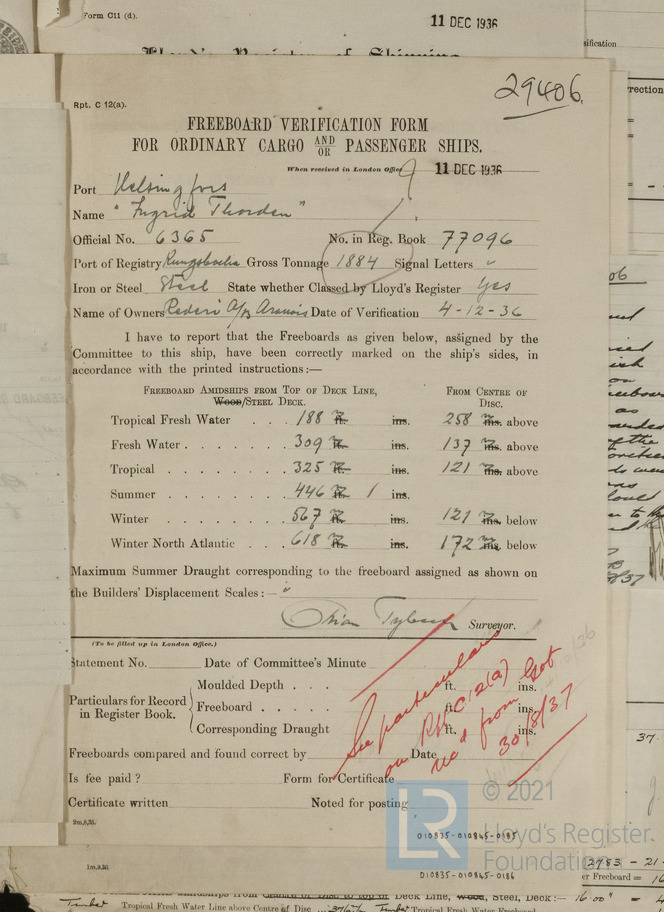 Form C11 (d).
11 DEC 1936
Lloyd's Register of Shipping
sification
29406.
rrection
Rpt. C 12(a).
FREEBOARD VERIFICATION FORM
FOR ORDINARY CARGO AND OR PASSENGER SHIPS.
When received in London Office 11 DEC 1936
Port Helsingfors
Name "Ingrid Thorden"
Official No. 6365 No. in Reg. Book 77096
Port of Registry Gross Tonnage 1884 Signal Letters "
Iron or Steel Steel State whether Classed by Lloyd's Register Yes
Name of Owners Rederi A/B Date of Verification 4-12-36
I have to report that the Freeboards as given below, assigned by the
Committee to this ship, have been correctly marked on the ship's sides, in
accordance with the printed instructions:—
FREEBOARD AMIDSHIPS FROM TOP OF DECK LINE, FROM CENTRE OF
WOOD/STEEL DECK. DISC.
Tropical Fresh Water . . . 188 ft. ins. 258 ins. above
Fresh Water . . . . . . . 309 ft. ins. 137 ins. above
Tropical . . . . . . . . 325 ft. ins. 121 ins. above
Summer . . . . . . . . 446 ft. 1 ins.
Winter . . . . . . . . 567 ft. ins. 121 ins. below
Winter North Atlantic . . . 618 ft. ins. 172 ins. below
Maximum Summer Draught corresponding to the freeboard assigned as shown on
the Builders' Displacement Scales:— "
Surveyor.
(To be filled up in London Office.)
Statement No. Date of Committee's Minute
Particulars for Record in Register Book.
Moulded Depth . . . ft. ins.
Freeboard . . . . . ft. ins.
Corresponding Draught ft. ins.
See particulars
on Rpt C12(a)
rec'd from Got
30/8/37
Freeboards compared and found correct by Date
Is fee paid? Form for Certificate
Certificate written Noted for posting
2m,8,35.
© 2021
LR
Lloyd's Register
Foundation
010835-010845-0185
1m.9.36.
010835-010845-0186
37.
2983 - 21
er Freeboard =
Deck Line, Wood, Steel, Deck:— 16.00"
Timber Tropical Fresh Water Line above Centre of Disc Timber Tropical Fresh Water Freeboard